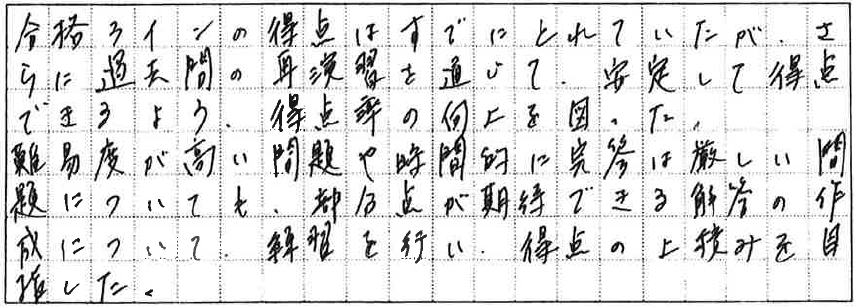 合格ラインの得点はすでにとれていたが、さ
らに過去問の再演習を通じて、安定して得点
できるよう、得点率の向上を図った。
難易度が高い問題や時間的に完答は厳しい問
題についても、部分点が期待できる解答の作
成について、練習を行い、得点の上積みを目
指した。